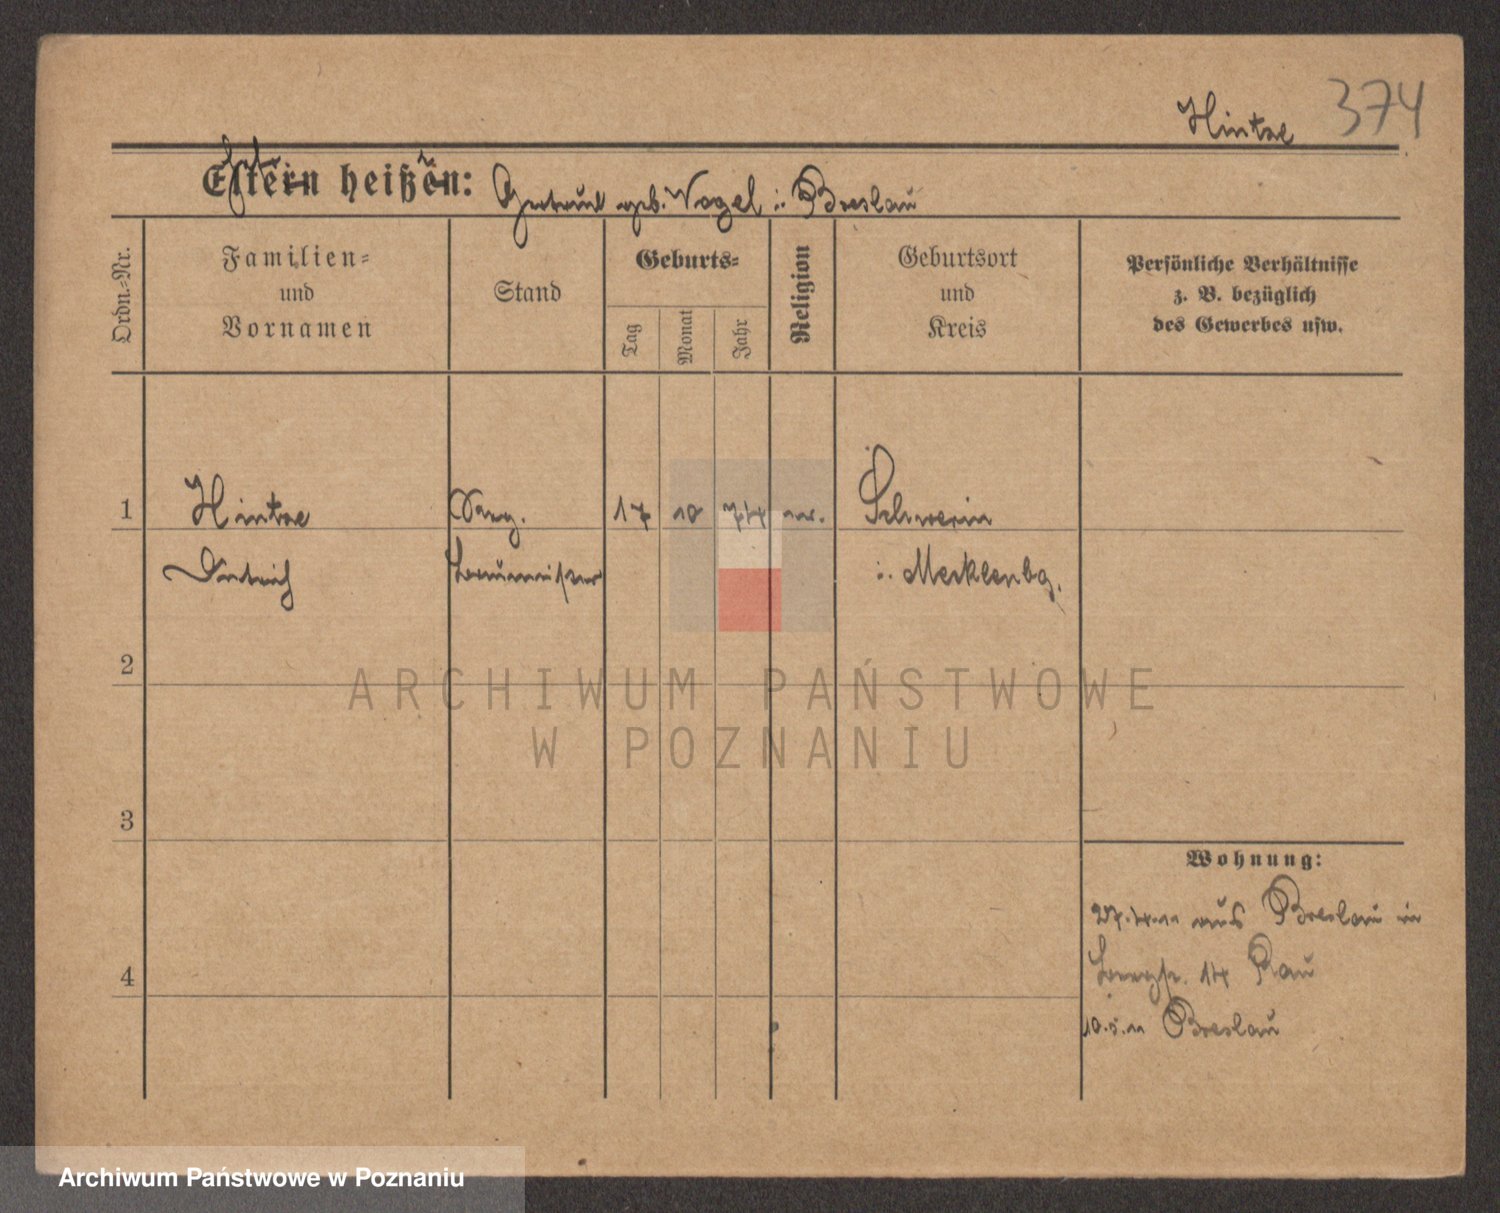 Hintze 374
Eltern heißen: Gertrud geb. Vogel i. Breslau
Ordn.-Nr.
Familien-
und
Vornamen
Stand
Geburts-
Tag
Monat
Jahr
Religion
Geburtsort
und
Kreis
Persönliche Verhältnisse
z. B. bezüglich
des Gewerbes usw.
1 Hintze 17 10 74 Schwerin
Dietrich Baumeister i. Mecklenbg.
2
ARCHIWUM PAŃSTWOWE
W POZNANIU
3
Wohnung:
27.4.11 aus Breslau in
14
4
10.5.11 Breslau
Archiwum Państwowe w Poznaniu